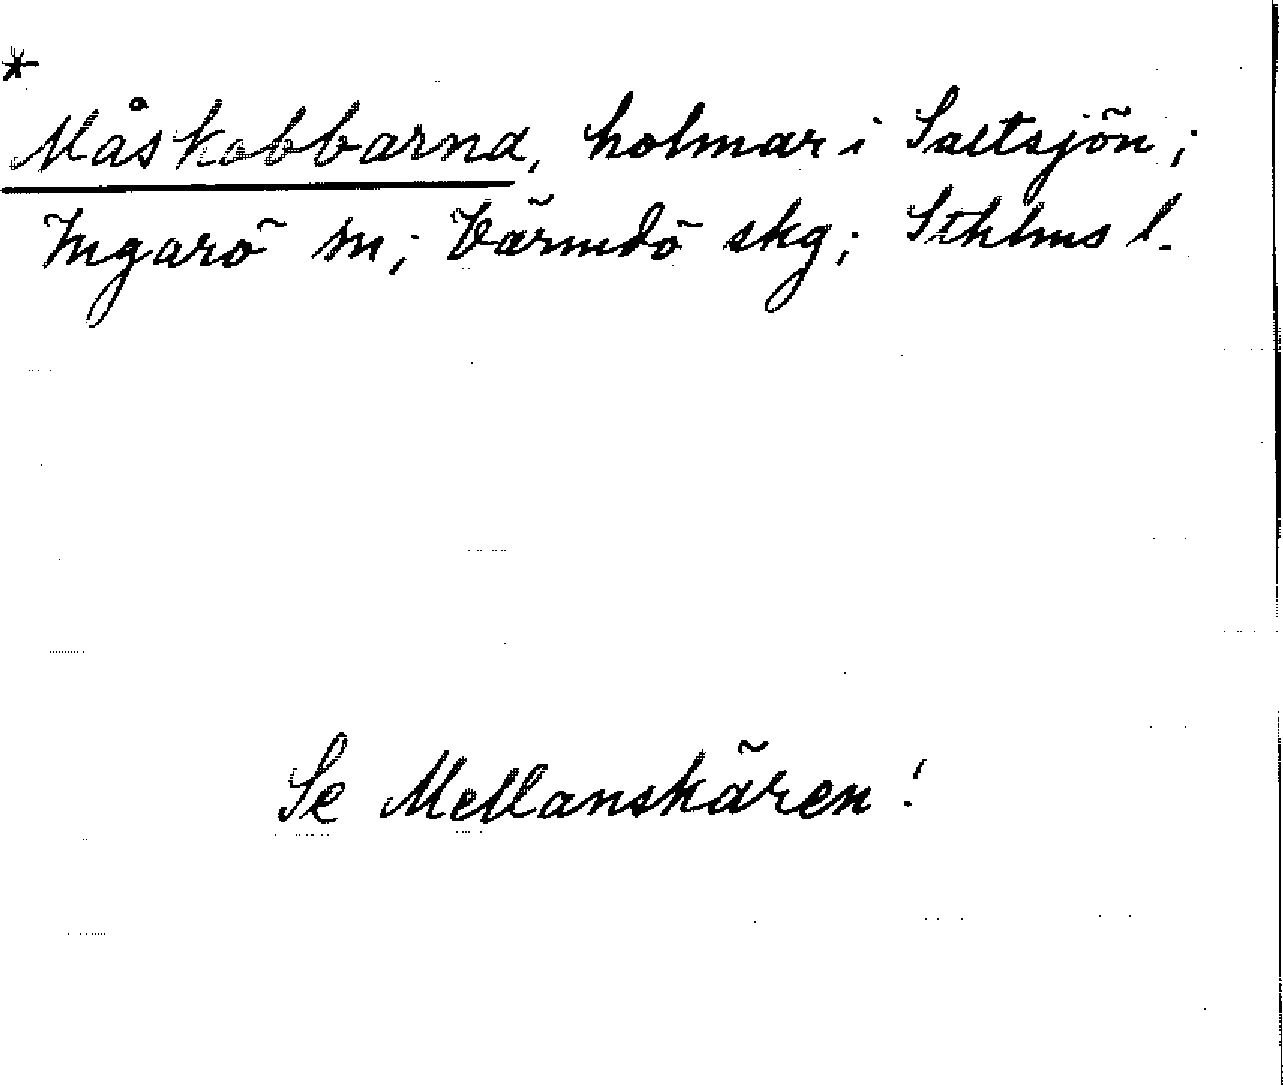 *
Måskobbarna, holmar i Saltsjön;
Ingarö sn; Värmdö skg; Sthlms l.
Se Mellanskären!